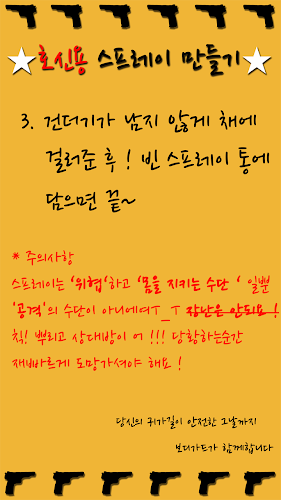 호신용 스프레이 만들기
3. 건더기가 남지 않게 채에
걸러준 후 ! 빈 스프레이 통에
담으면 끝~
* 주의사항
스프레이는 '위협'하고 '몸을 지키는 수단 ' 일뿐
'공격'의 수단이 아니에여ㅜ_ㅜ 장난은 안되요 !
칙! 뿌리고 상대방이 어 !!! 당황하는순간
재빠르게 도망가셔야 해요 !
당신의 귀가길이 안전한 그날까지
보디가드가 함께합니다